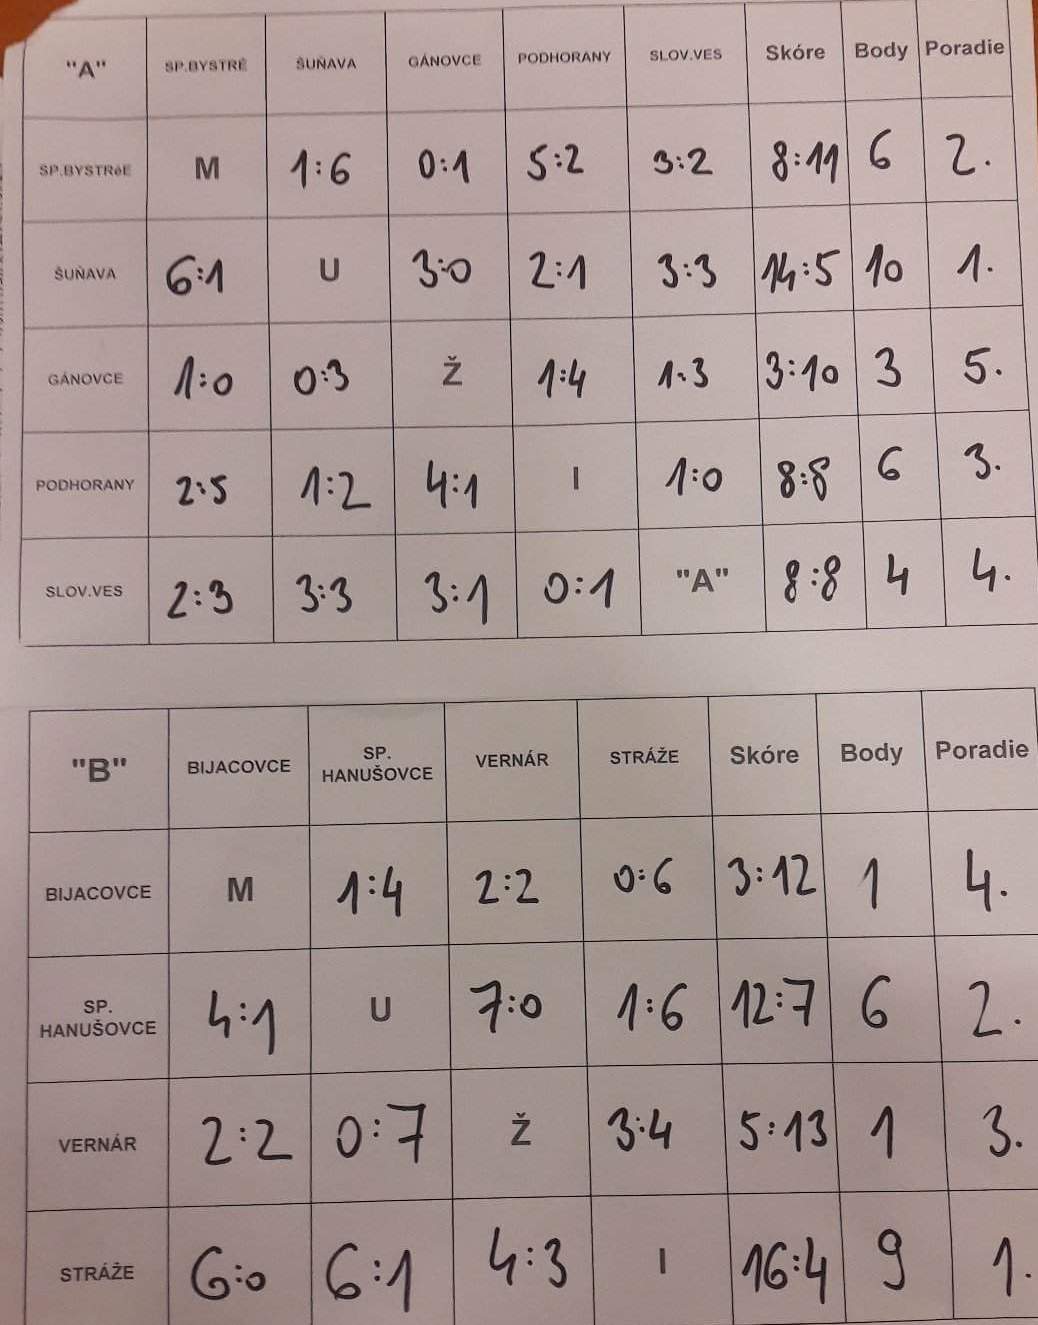 "A" SP.BYSTRÉ ŠUŇAVA GÁNOVCE PODHORANY SLOV.VES Skóre Body Poradie
SP.BYSTRéE M 1:6 0:1 5:2 3:2 8:11 6 2.
ŠUŇAVA 6:1 U 3:0 2:1 3:3 14:5 10 1.
GÁNOVCE 1:0 0:3 Ž 1:4 1:3 3:10 3 5.
PODHORANY 2:5 1:2 4:1 I 1:0 8:8 6 3.
SLOV.VES 2:3 3:3 3:1 0:1 "A" 8:8 4 4.
"B" BIJACOVCE SP. HANUŠOVCE VERNÁR STRÁŽE Skóre Body Poradie
BIJACOVCE M 1:4 2:2 0:6 3:12 1 4.
SP. HANUŠOVCE 4:1 U 7:0 1:6 12:7 6 2.
VERNÁR 2:2 0:7 Ž 3:4 5:13 1 3.
STRÁŽE 6:0 6:1 4:3 I 16:4 9 1.